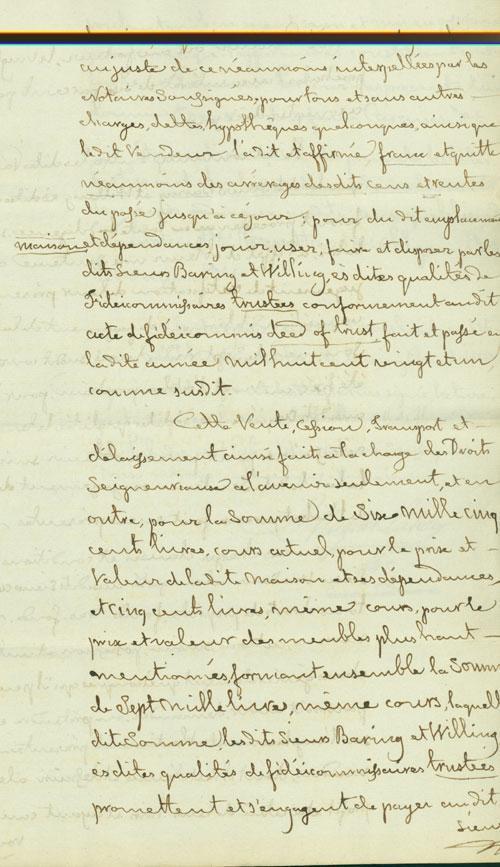 enjuste de ce néaumoins interpellées par les
Notaires Soussignés, pour tous et sans autres
charges, dettes, hypothèques quelconques, ainsi que
ledit Vendeur l'a dit et affirmé franc et quitte
néaumoins des arrérages desdits cens et rentes
du passé jusqu'à ce jour; pour du dit emplacement
maison et dépendances jouir, user, faire et disposer par les
dits Sieurs Baring et Willing, ès dites qualités de
Fidéicommissaires trustees conformément audit
acte de fidéicommis deed of trust, fait et passé en
ladite année mil huit cent vingt et un
comme susdit.
Cette Vente, Cession, Transport et
délaissement ainsi faits à la charge des Droits
Seigneuriaux à l'avenir seulement, et en
outre, pour la Somme de Six Mille cinq
cents livres, cours actuel, pour le prix et
Valeur de ladite Maison et ses dépendances,
et Cinq cents livres, même cours, pour le
prix et valeur des meubles plus haut
mentionnés, formant ensemble la Somme
de Sept Mille livres, même cours, laquelle
dite Somme, lesdits Sieurs Baring et Willing
ès dites qualités de fidéicommissaires trustees
promettent et s'engagent de payer audit
Sieur